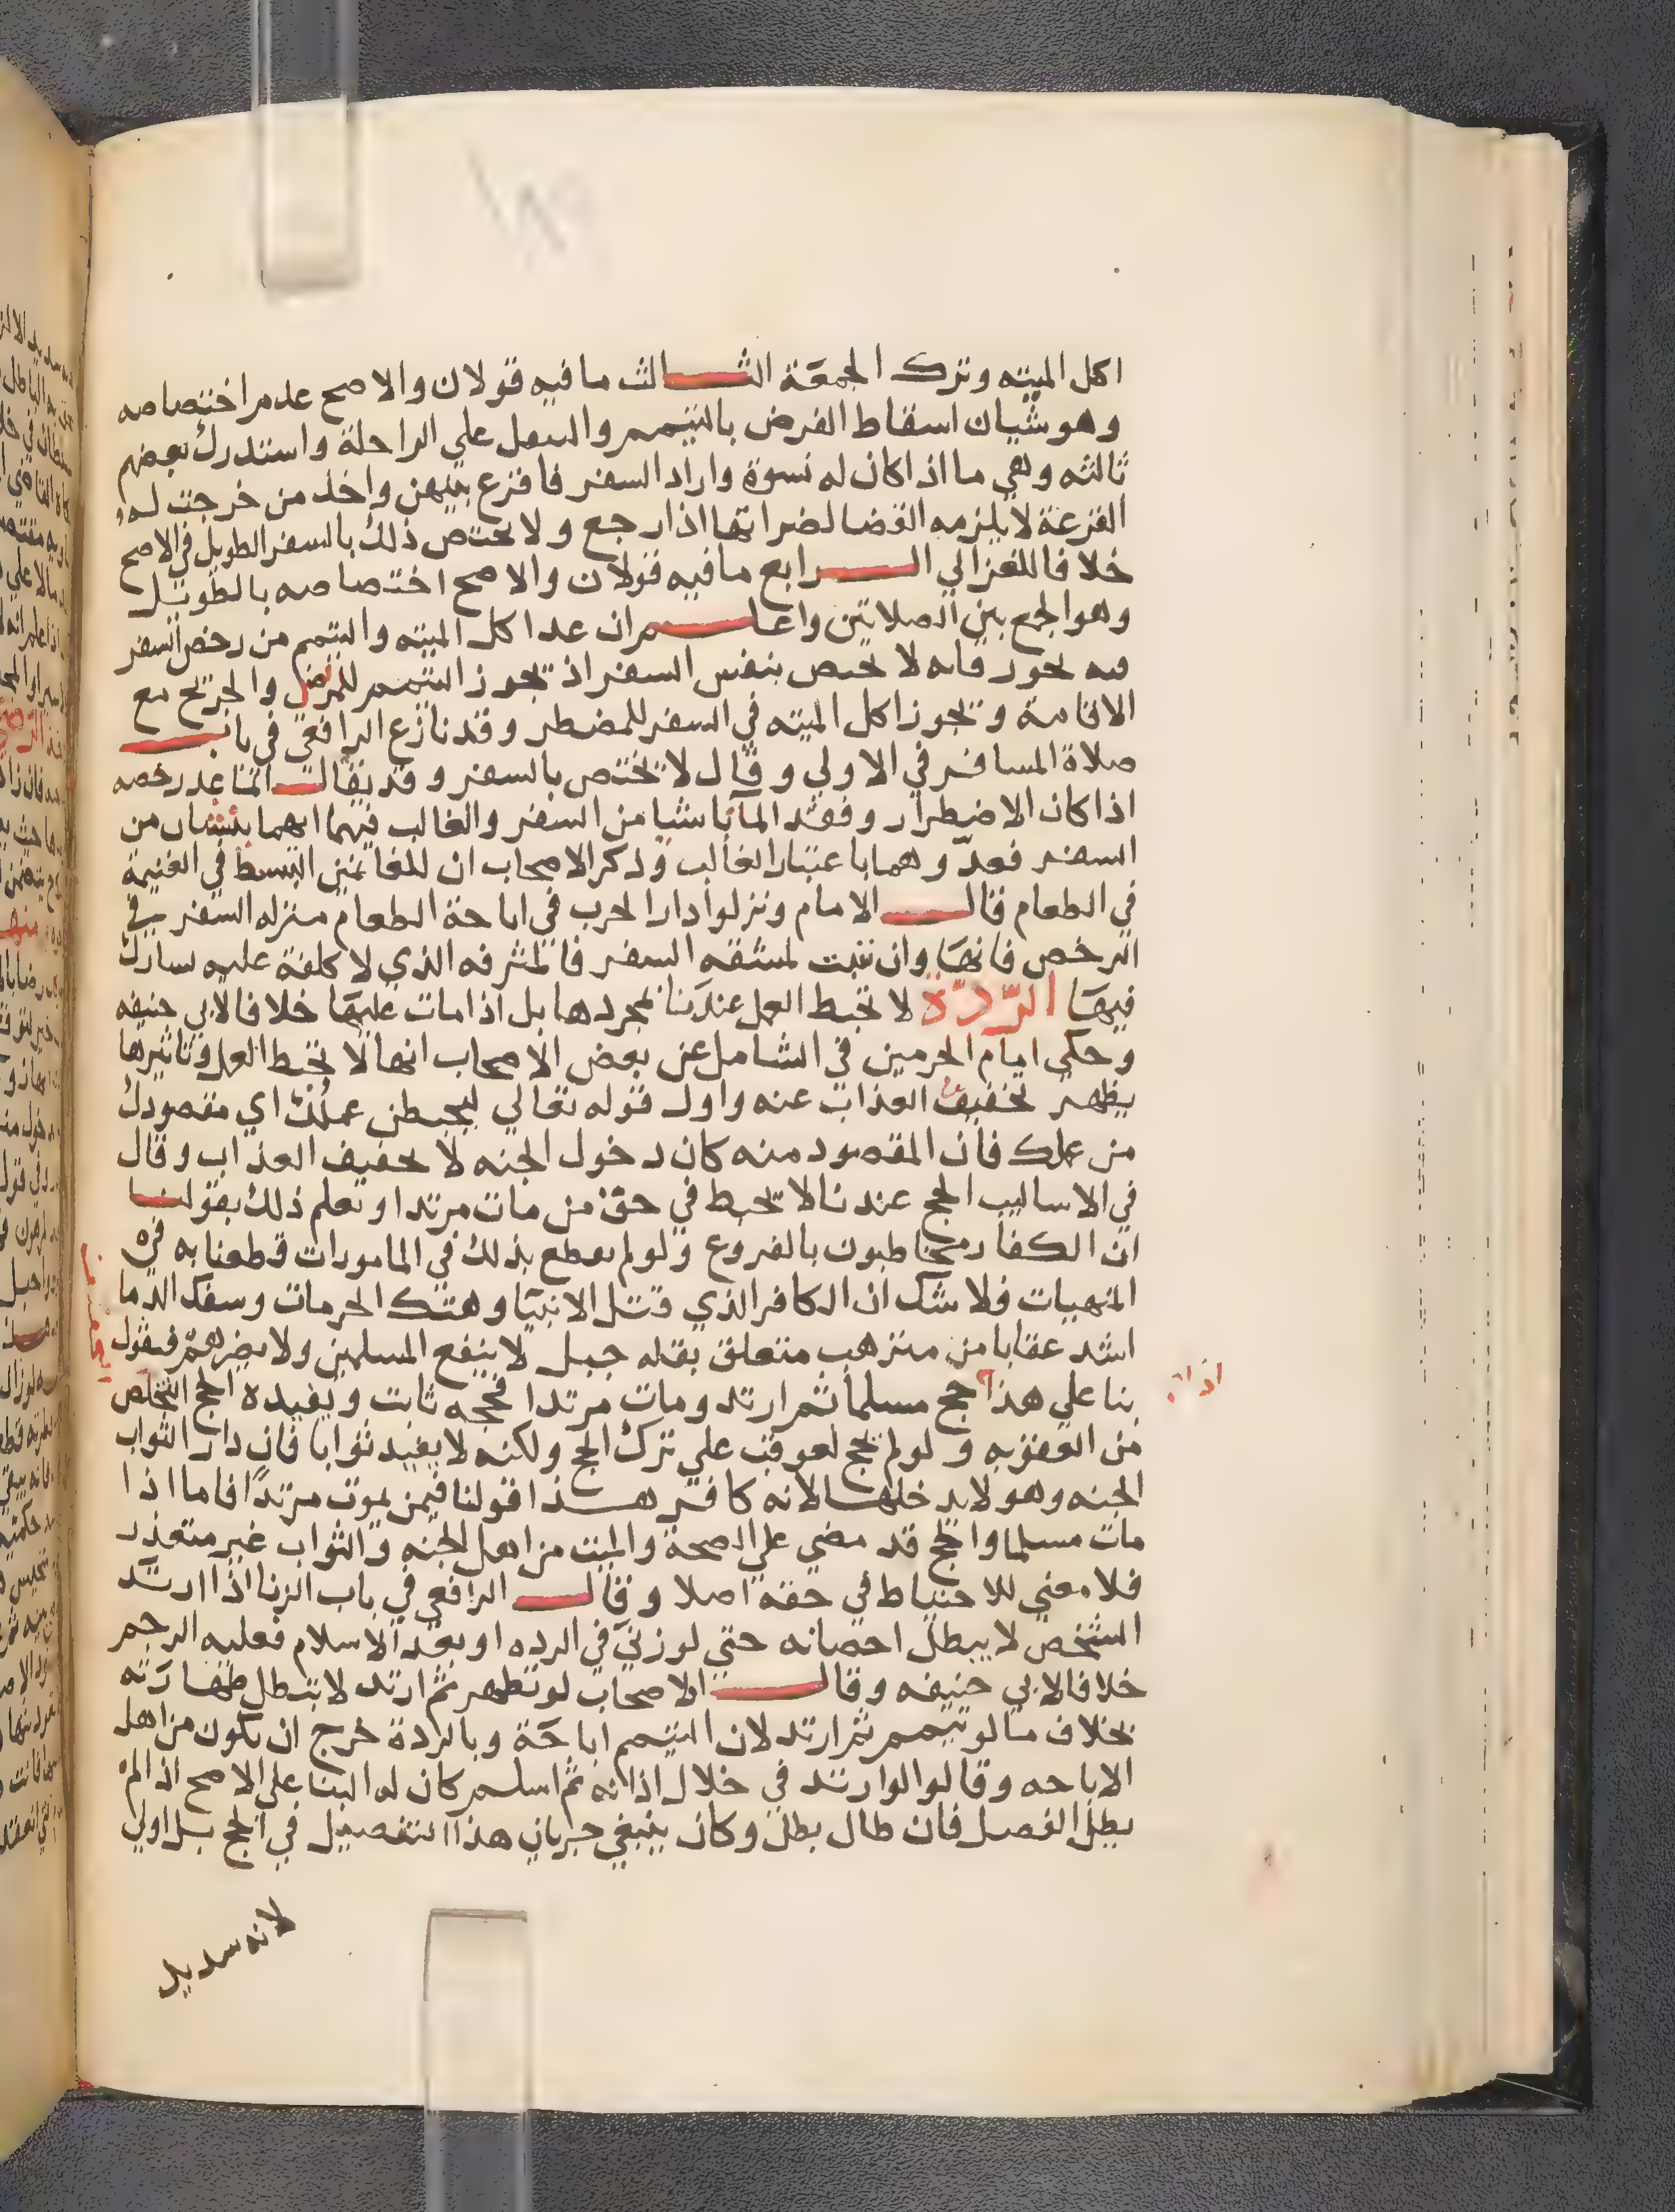 اكل الميته وترك الجمعة الثالث ما فيه قولان والاصح عدم اختصاصه
وهو شيان اسقاط الفرض بالتيمم والتنفل علي الراحلة واستدرك بعضهم
ثالثه وهي ما اذا كان له نسوة واراد السفر فاقرع بينهن واخذ من خرجت لها
القرعة لا يلزمه القضا لضراتها اذا رجع ولا يختص ذلك بالسفر الطويل في الاصح
خلافا للغزالي الرابع ما فيه قولان والاصح اختصاصه بالطويل
وهو الجمع بين الصلاتين واعلم ان عد اكل الميته والتيمم من رخص السفر
فيه تجوز فانه لا يختص بنفس السفر اذ يجوز التيمم للمريض والجريح مع
الاقامة ويجوز اكل الميته في السفر للمضطر وقد نازع الرافعي في باب
صلاة المسافر في الاولي وقال لا تختص بالسفر وقد يقال انما عد رخصه
اذا كان الاضطرار وفقد الما ناشيا من السفر والغالب فيهما انهما ينشان من
السفر فعدوهما باعتبار الغالب وذكر الاصحاب ان للغانمين التبسط في الغنيمة
في الطعام قال الامام ونزلوا دار الحرب في اباحة الطعام منزله السفر في
الرخص فانها وان تثبت لمشقه السفر فالمترفه الذي لا كلفة عليه يشارك
فيها الرّدّة لا تحبط العمل عندنا بمجردها بل اذا مات عليها خلافا لابي حنيفه
وحكى امام الحرمين في الشامل عن بعض الاصحاب انها لا تحبط العمل وتاثيرها
يظهر تخفيف العذاب عنه واول قوله تعالي ليحبطن عملك اي مقصودك
من عملك فان المقصود منه كان دخول الجنه لا تخفيف العذاب وقال
في الاساليب الحج عندنا لا يحبط في حق من مات مرتدا ويعلم ذلك بقولنا
ان الكفار مخاطبون بالفروع ولو لم نقطع بذلك في المامورات قطعنا به في
المنهيات فلا شك ان الكافر الذي قتل الانبيا وهتك الحرمات وسفك الدما
اشد عقابا من مترهب متعلق بقله جبل لا ينفع المسلمين ولا يضرهم فنقول
بنا علي هذا حج مسلما ثم ارتد ومات مرتدا فحجه ثابت ويفيده الحج التخلص
اذا
من العقوبه ولو لم يحج لعوقب علي ترك الحج ولكنه لا يفيد ثوابا فان دار الثواب
الجنه وهو لا يدخلها لانه كافر هذا قولنا فيمن يموت مرتدا فاما اذا
مات مسلما والحج قد مضي علي الصحة والميت من اهل الجنه والثواب غير متعذر
فلا معني للاحتياط في حقه اصلا وقال الرافعي في باب الزنا اذا ارتد
الشخص لا يبطل احصانه حتي لو زني في الرده او بعد الاسلام فعليه الرجم
خلافا لابي حنيفه وقال الاصحاب لو تطهر ثم ارتد لا تبطل طهارته
بخلاف ما لو تيمم ثم ارتد لان التيمم اباحة وبالردة خرج ان يكون من اهل
الاباحه وقالوا لو ارتد في خلال اذانه ثم اسلم كان له البنا علي الاصح اذا لم
يطل الفصل فان طال بطل وكان ينبغي جريان هذا التفصيل في الحج بل اولي
لانه سديد